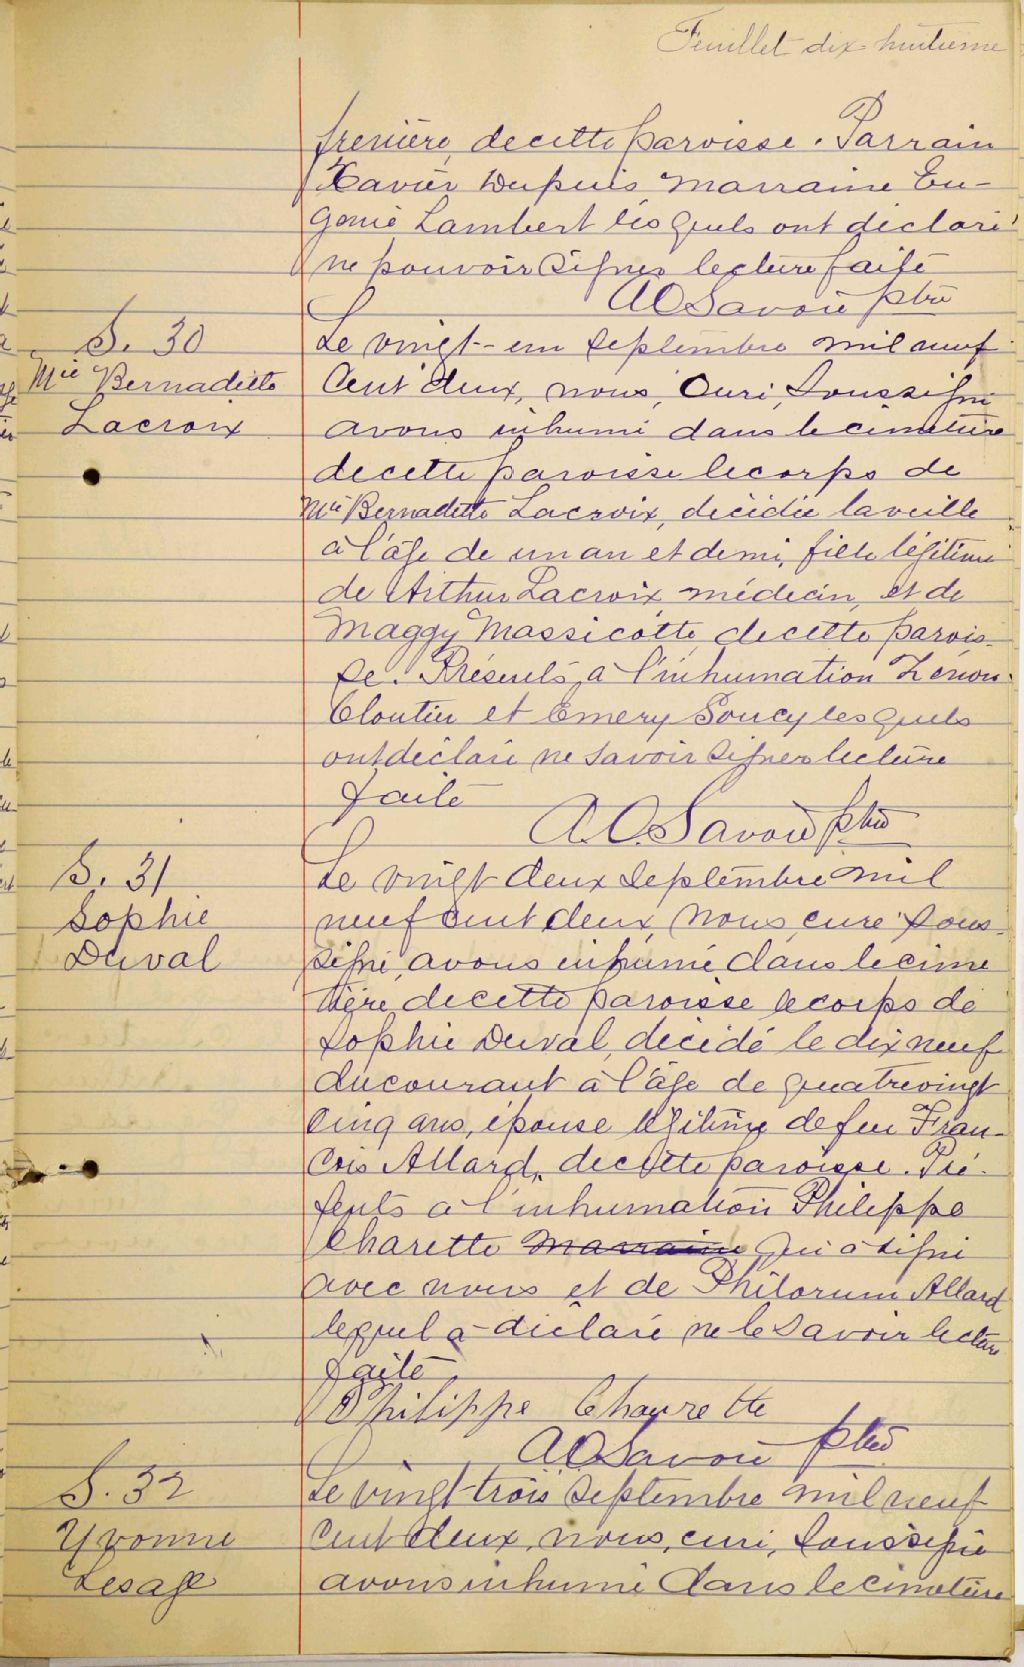 Feuillet dix-huitième
frenière, de cette paroisse. Parrain
Xavier Dupuis, marraine Eu-
génie Lambert lesquels ont déclaré
ne pouvoir signer lecture faite
A O Savoie ptre
S. 30
Mie Bernadette
Lacroix
Le vingt-un septembre mil neuf
cent deux, nous, Curé, soussigné
avons inhumé dans le cimetière
de cette paroisse le corps de
Mie Bernadette Lacroix, décédée la veille
à l'âge de un an et demi, fille légitime
de Arthur Lacroix médecin, et de
Maggy Massicotte de cette parois-
se. Présents à l'inhumation Zénon
Cloutier et Emery Soucy lesquels
ont déclaré ne savoir signer lecture
faite
A. O. Savoie ptre
S. 31
Sophie
Duval
Le vingt deux septembre mil
neuf cent deux, nous, curé sous-
signé, avons inhumé dans le cime
tière de cette paroisse le corps de
Sophie Duval, décédé le dix neuf
du courant à l'âge de quatre vingt
cinq ans, épouse légitime de feu Fran-
çois Allard, de cette paroisse. Pré-
sents à l'inhumation Philippe
Charette marraine qui a signé
avec nous et de Philorum Allard
lequel a déclaré ne le savoir lecture
faite
Philippe Chaurette
A O Savoie ptre
S. 32
Yvonne
Lesage
Le vingt-trois septembre mil neuf
cent deux, nous, curé, soussigné
avons inhumé dans le cimetière